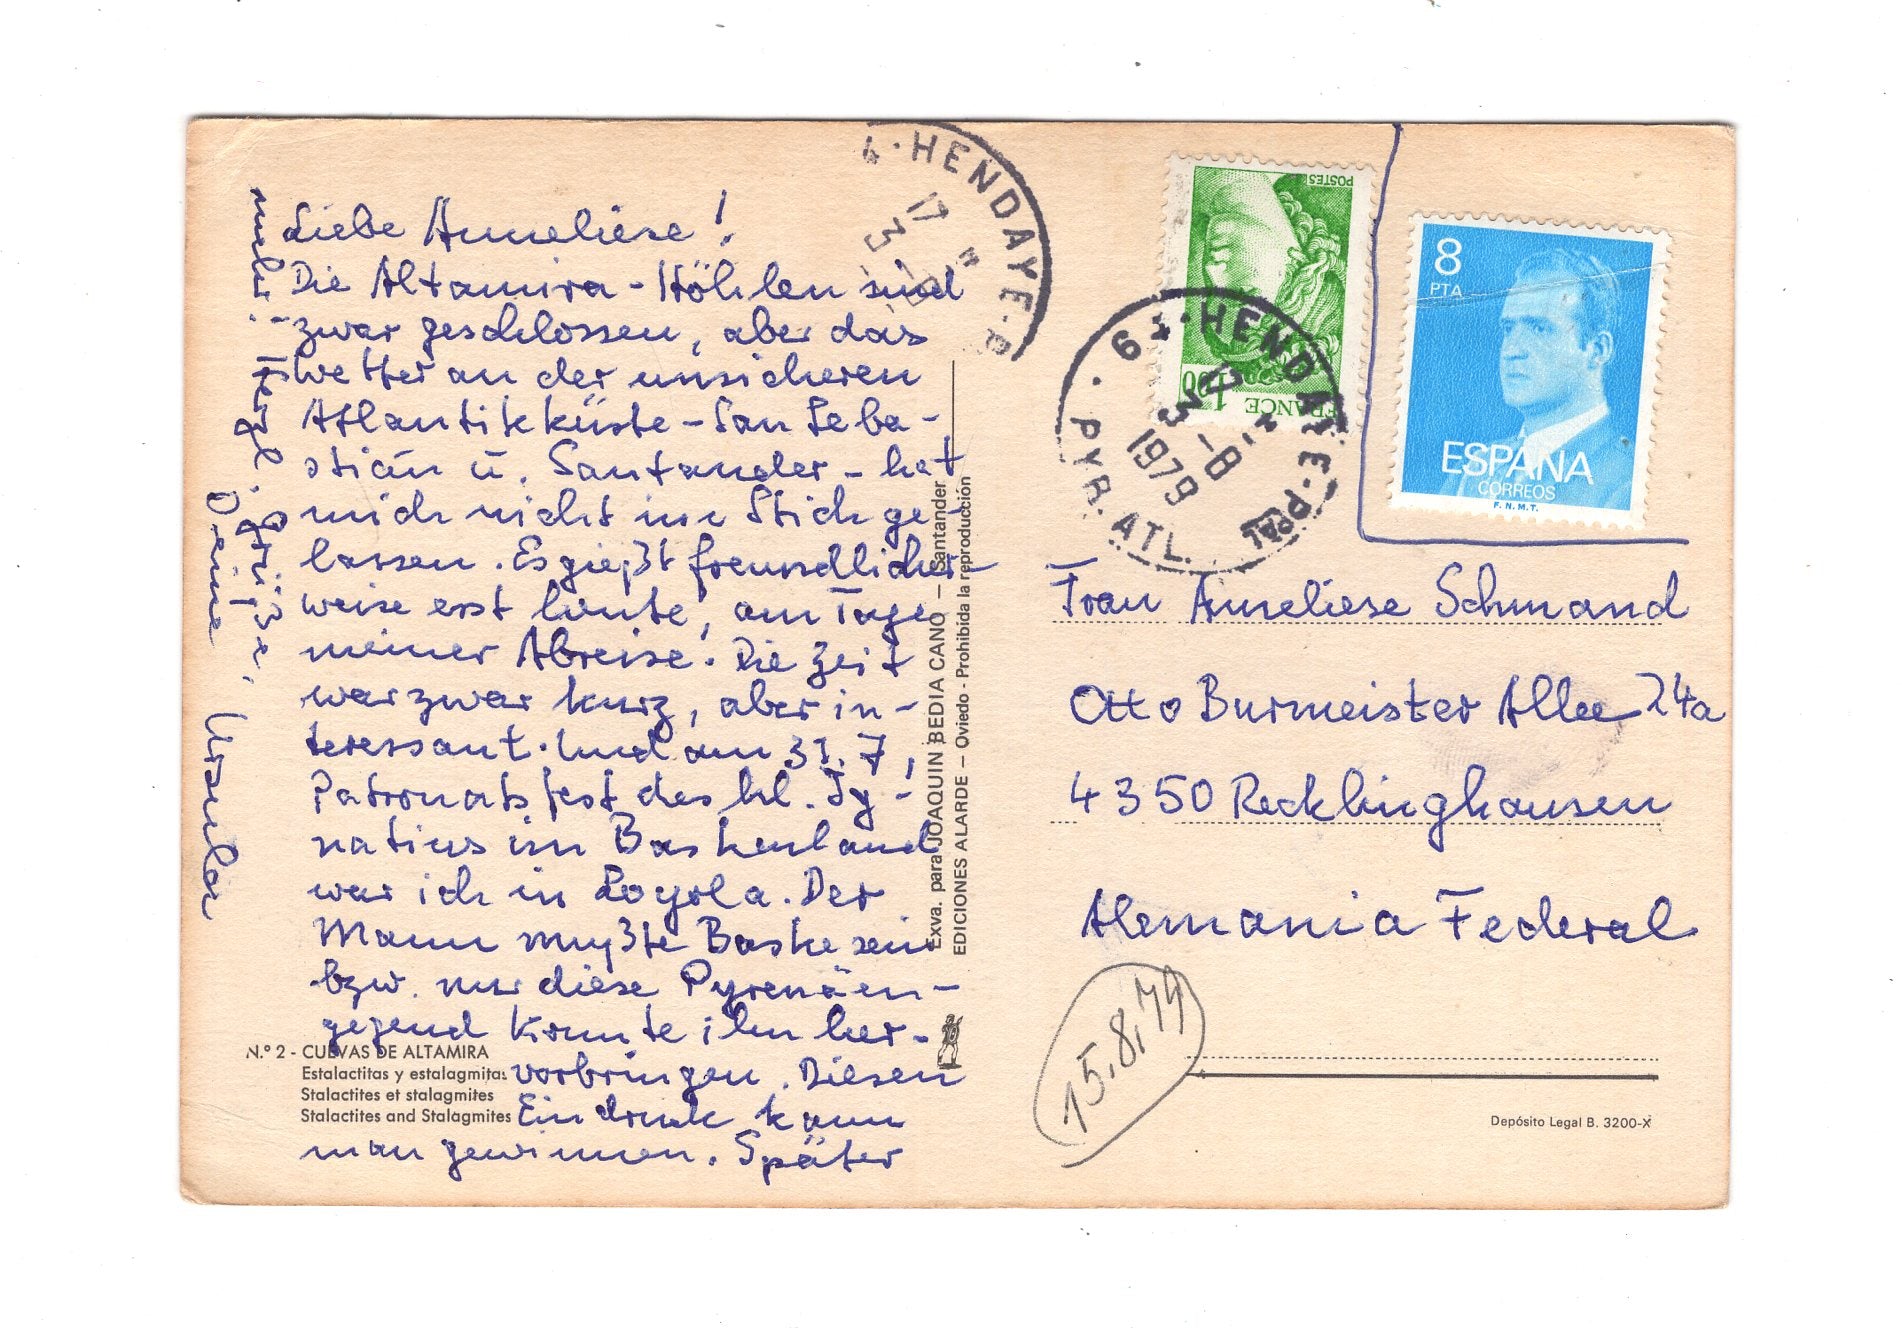 Liebe Anneliese!
Die Altamira-Höhlen sind
zwar geschlossen, aber das
Wetter an der unsicheren
Atlantikküste - San Seba-
stián u. Santander - hat
mich nicht im Stich ge-
lassen. Es gießt freundlicher-
weise erst heute, am Tage
meiner Abreise. Die Zeit
war zwar kurz, aber in-
teressant. Und am 31.7,
Patronatsfest des hl. Ig-
natius im Baskenland
war ich in Loyola. Der
Mann mußte Baske sein
bzw. nur diese Pyrenäen-
gegend konnte ihn her-
vorbringen. Diesen
Eindruck kann
man gewinnen. Später
mehr. - Herzl. Grüße,
Deine Ursula
N.º 2 - CUEVAS DE ALTAMIRA
Estalactitas y estalagmitas
Stalactites et stalagmites
Stalactites and Stalagmites
Exva. para JOAQUIN BEDIA CANO — Santander
EDICIONES ALARDE — Oviedo - Prohibida la reproducción
6 · HENDAYE-P
17 H
3
POSTES
1,00
FRANCE
64 · HENDAYE-PPAL
17 H
3 -8
1979
· PYR. ATL.
8
PTA
ESPAÑA
CORREOS
F.N.M.T.
Frau Anneliese Schmand
Otto Burmeister Allee 24a
4350 Recklinghausen
Alemania Federal
15.8.79
Depósito Legal B. 3200-X